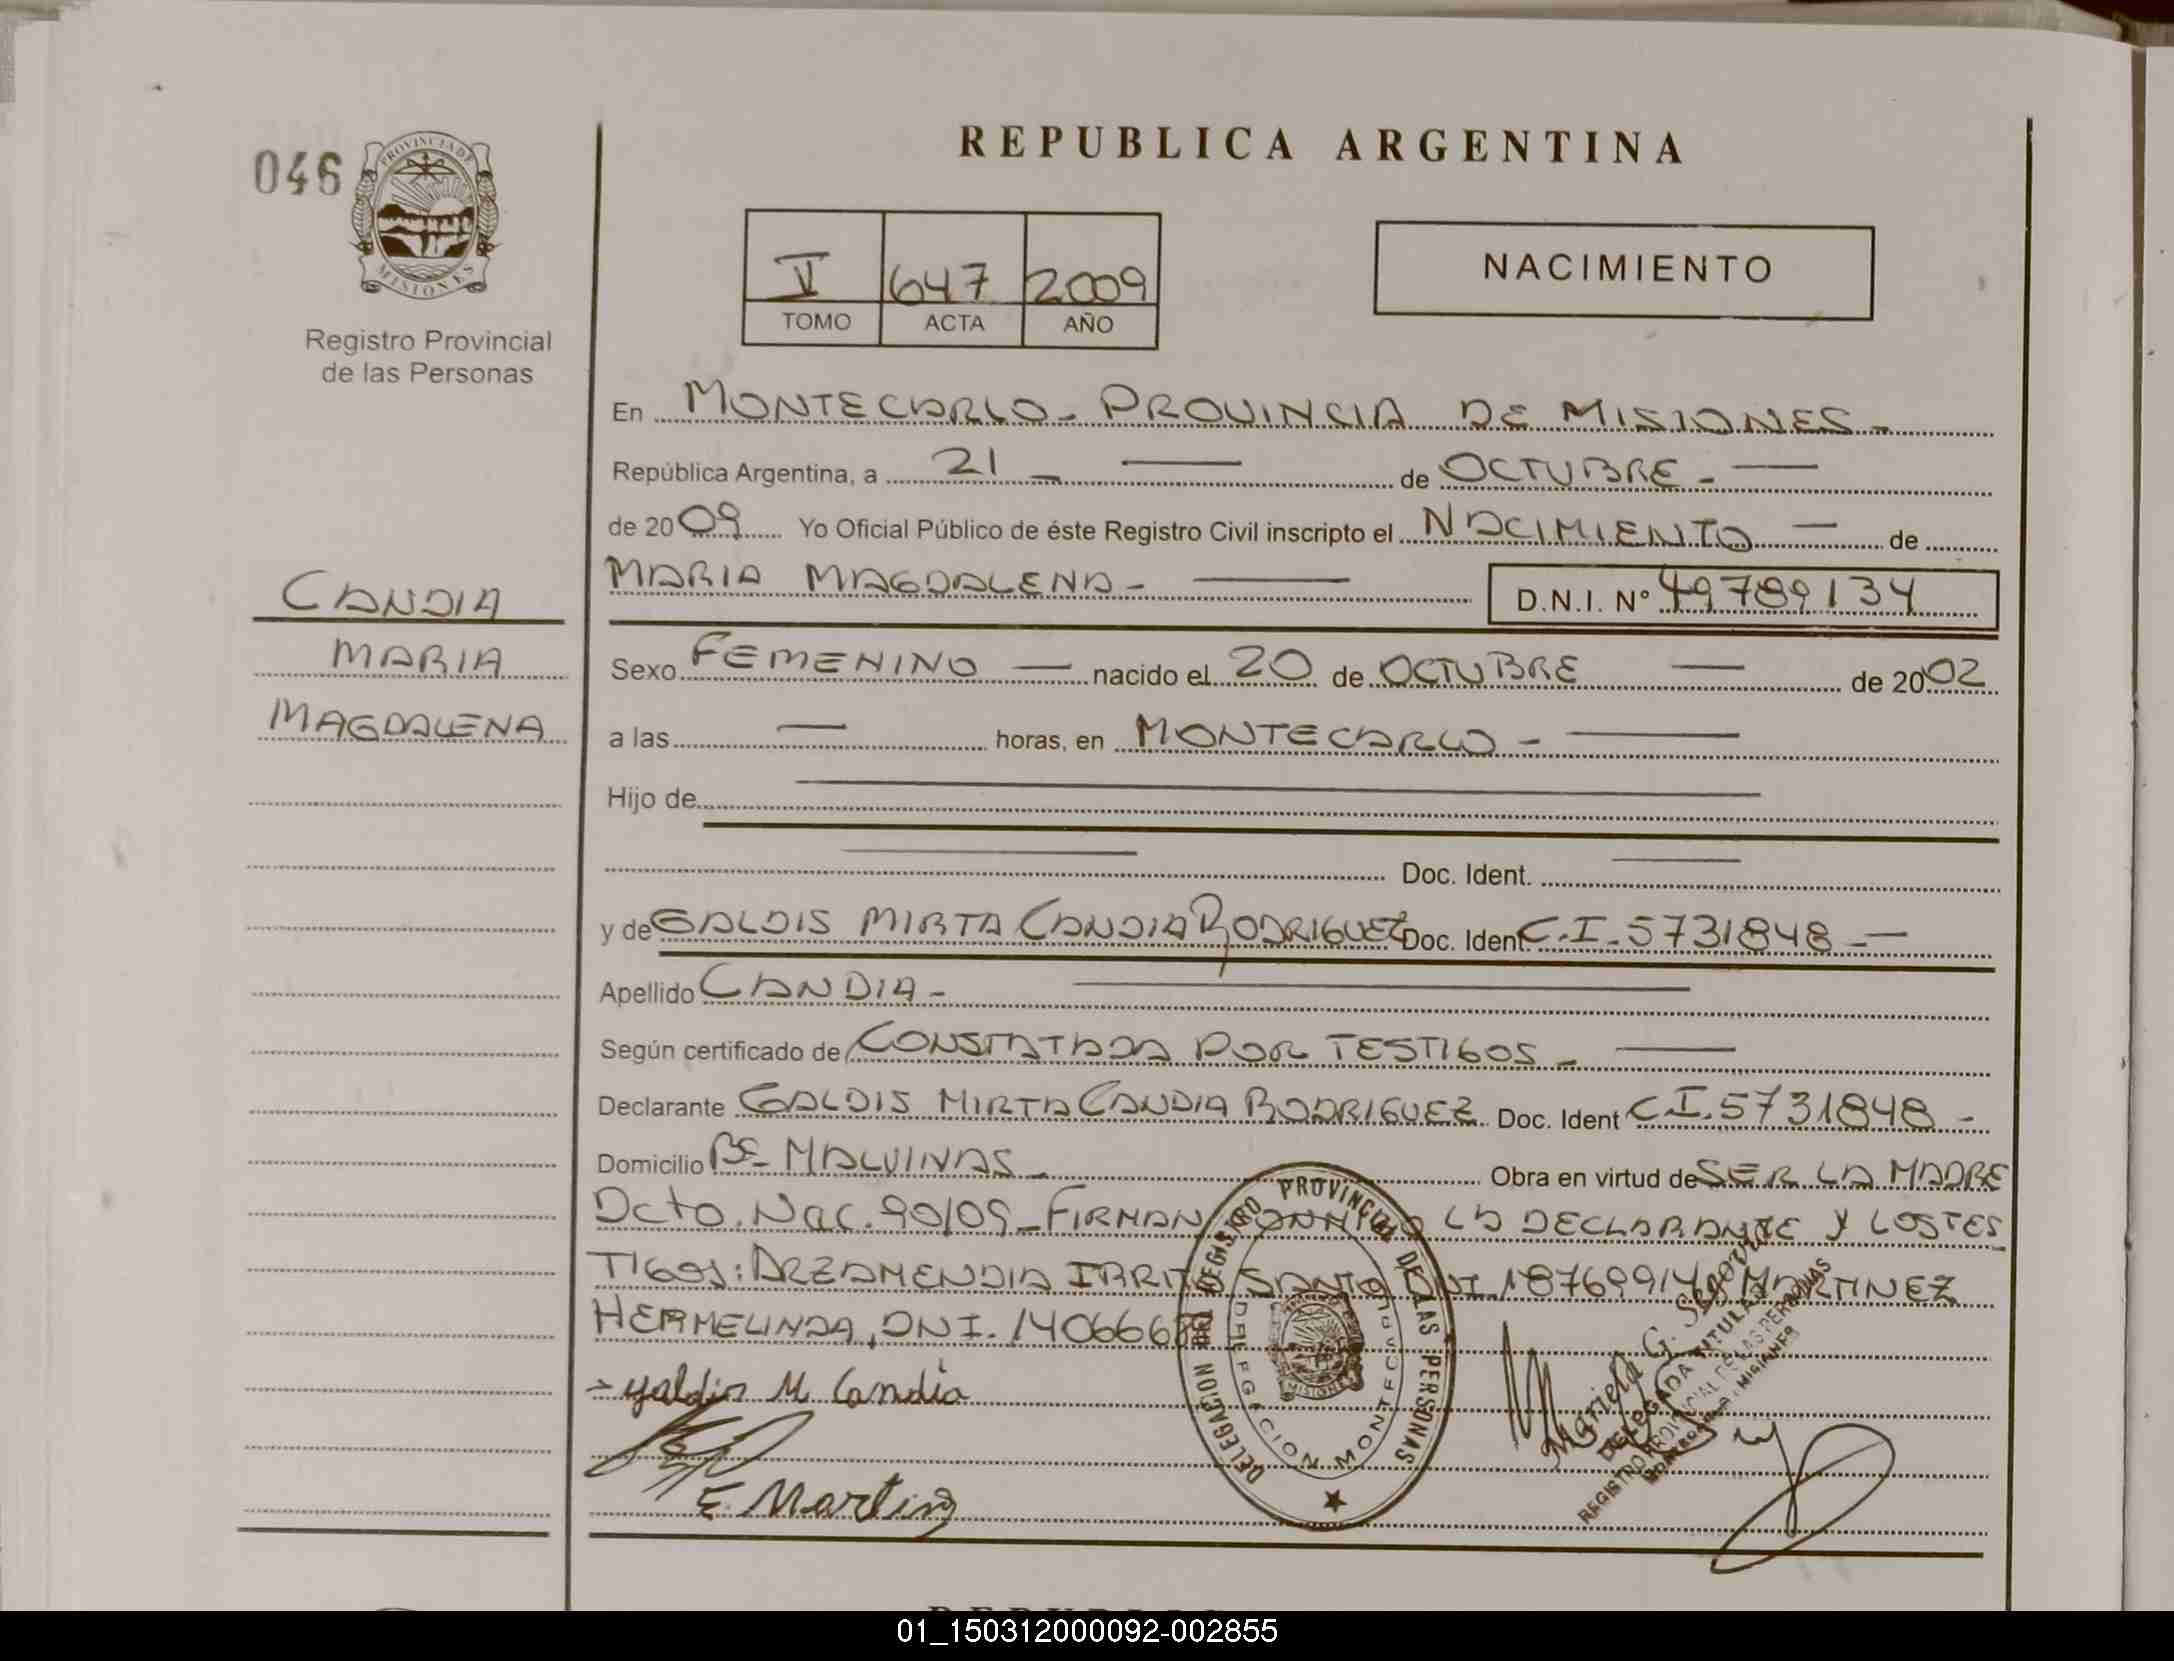 046
PROVINCIA DE
MISIONES
Registro Provincial
de las Personas
CANDIA
MARIA
MAGDALENA
REPUBLICA ARGENTINA
V 647 2009
TOMO ACTA AÑO
NACIMIENTO
En MONTECARLO - PROVINCIA DE MISIONES -
República Argentina, a 21 - de OCTUBRE -
de 2009 Yo Oficial Público de éste Registro Civil inscripto el NACIMIENTO - de
MARIA MAGDALENA - D.N.I. N° 49789134
Sexo FEMENINO - nacido el 20 de OCTUBRE - de 2002
a las - horas, en MONTECARLO -
Hijo de
Doc. Ident.
y de GALDIS MIRTA CANDIA RODRIGUEZ Doc. Ident. C.I. 5731848 -
Apellido CANDIA -
Según certificado de CONSTATADA POR TESTIGOS -
Declarante GALDIS MIRTA CANDIA RODRIGUEZ Doc. Ident C.I. 5731848 -
Domicilio Bº MALVINAS - Obra en virtud de SER LA MADRE
Dcto. Nac. 90/09 - FIRMAN LA DECLARANTE Y LOS TES
TIGOS: ARZAMENDIA DNI. MARTINEZ
HERMELINDA, DNI. 140666
Galdis M Candia
E. Martinez
DELEGACION DEL REGISTRO PROVINCIAL DE LAS PERSONAS
DELEGACION MONTECARLO
MISIONES
Mariela G.
DELEGADA TITULAR
REGISTRO PROVINCIAL DE LAS PERSONAS
MONTECARLO - MISIONES
01_150312000092-002855